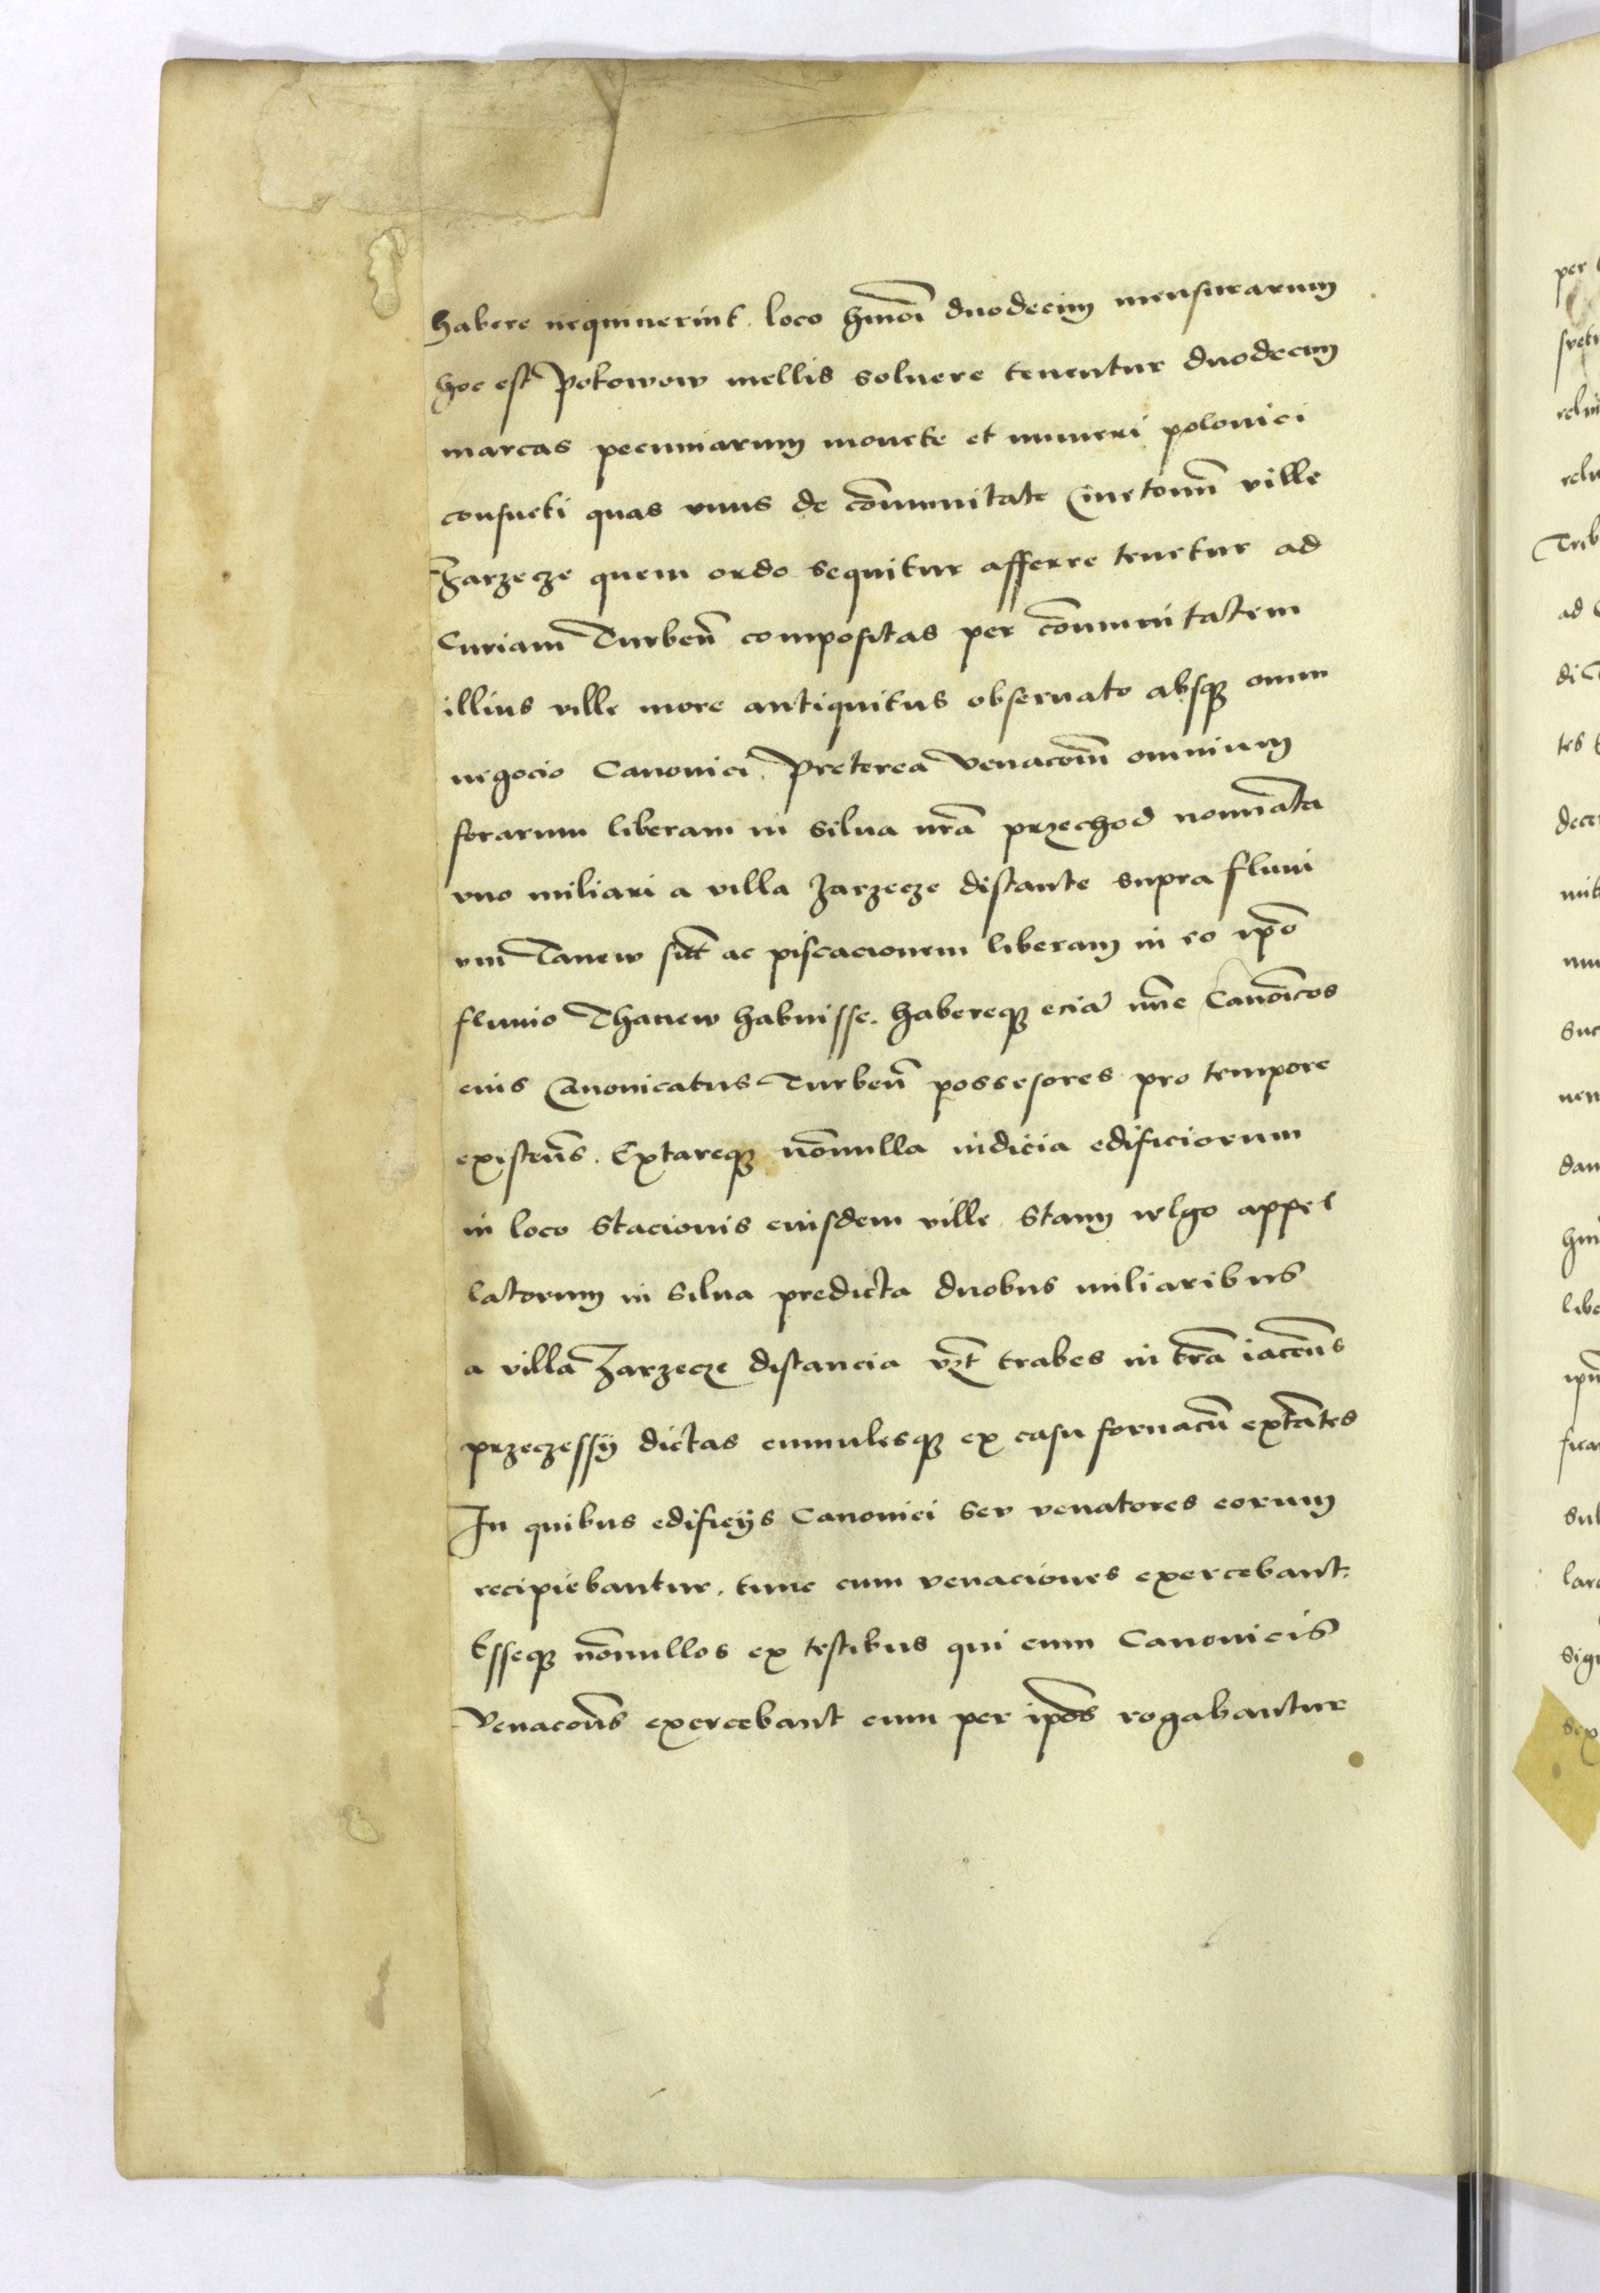 habere nequiuerint. loco hmōi duodecim mensurarum
hoc est pokowow mellis soluere tenentur duodecim
marcas pecuniarum monete et numeri polonici
consueti quas vnus de cōmunitate Cmetonū ville
Zarzecze quem ordo sequitur afferre tenetur ad
Curiam Turbeñ compositas per cōmunitatem
illius ville more antiquitus obseruato absqȝ omni
negocio Canonici. Preterea venacoīm omnium
ferarum liberam in silua nrā przechod nominata
vno miliari a villa Zarzecze distante supra fluui
vm Tanew sict ac piscacionem liberam in eo ipō
fluuio Thanew habuisse. habereqȝ eciā nūc Canoīcos
eius Canonicatus Turbeñ possesores pro tempore
existeñs. Extareqȝ nōnulla indicia edificiorum
in loco Stacionis eiusdem ville Stany wlgo appel
latorum in silua predicta duobus miliaribus
a villa Zarzecze distancia vȝt trabes in trā iaceñs
przeczessy dictas cumulesqȝ ex casu fornacū extātes
In quibus edificijs Canonici seu venatores eorum
recipiebantur. tunc cum venaciones exercebant.
Esseqȝ nōnullos ex testibus qui cum Canonicis
Venacoñs exercebant cum per ipōs rogabantur